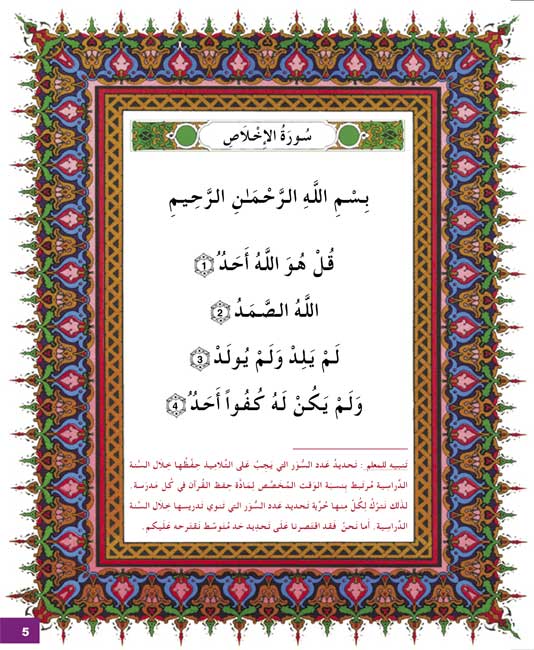 سُورَةُ الإِخْلَاصِ
بِسْمِ اللَّهِ الرَّحْمَـٰنِ الرَّحِيمِ
قُلْ هُوَ اللَّهُ أَحَدٌ 1
اللَّهُ الصَّمَدُ 2
لَمْ يَلِدْ وَلَمْ يُولَدْ 3
وَلَمْ يَكُنْ لَهُ كُفُواً أَحَدٌ 4
تنبيه للمعلم : تحديدُ عَدد السُّوَر التي يَجِبُ عَلى التَّلاميذ حِفْظُها خِلال السَّنة
الدِّراسية مُرتَبط بنسبَة الوَقت المُخَصَّص لِمَادَّة حِفظ القُرآن في كُل مَدرسة.
لذلك نترُكُ لِكُلٍّ مِنها حُرِّية تحديد عَدد السُّوَر التي تنوي تدريسها خِلال السَّنة
الدِّراسية. أما نَحنُ فقد اقتصَرنا عَلَى تحْدِيد حَد مُتَوسِّط نقترحه عَلَيكم.
5